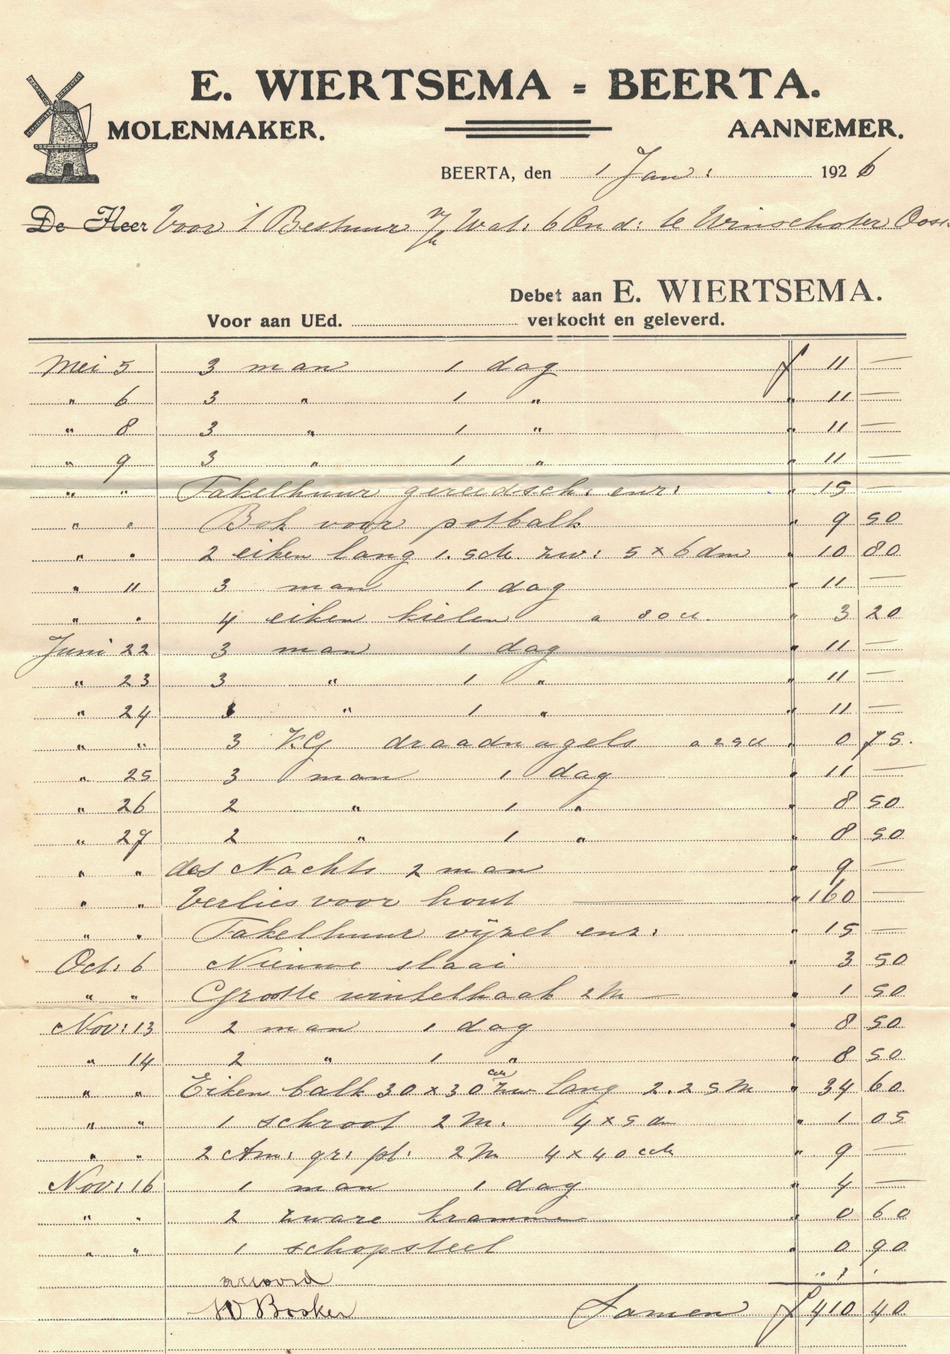 E. WIERTSEMA = BEERTA.
MOLENMAKER. AANNEMER.
BEERTA, den 1 Jan: 1926
De Heer Voor 't Bestuur v/h Wat: 6e Ond: te Winschoter Oost.
Debet aan E. WIERTSEMA.
Voor aan UEd. verkocht en geleverd.
Mei 5 3 man 1 dag ƒ 11 —
" 6 3 " 1 " " 11 —
" 8 3 " 1 " " 11 —
" 9 3 " 1 " " 11 —
" " Takelhuur gereedsch: enz: " 15 —
" " Bok voor potbalk " 9 50
" " 2 eiken lang 1. zw: 5 x 6 dm " 10 80
" 11 3 man 1 dag " 11 —
" " 4 eiken kielen a 80 " 3 20
Juni 22 3 man 1 dag " 11 —
" 23 3 " 1 " " 11 —
" 24 3 " 1 " " 11 —
" " 3 KG draadnagels a 25 " 0 75.
" 25 3 man 1 dag " 11 —
" 26 2 " 1 " " 8 50
" 27 2 " 1 " " 8 50
" " des Nachts 2 man " 9 —
" " Verlies voor hout " 160 —
" " Takelhuur vijzel enz: " 15 —
Oct: 6 Nieuwe slaai " 3 50
" " Groote winkelhaak 2 M — " 1 50
Nov: 13 2 man 1 dag " 8 50
" 14 2 " 1 " " 8 50
" " Eiken balk 30 x 30 cm zw lang 2.25 M " 34 60
" " 1 schroot 2 M. 4 x 5 " 1 05
" " 2 Am: gr: pl: 2 M 4 x 40 cm " 9 —
Nov: 16 1 man 1 dag " 4 —
" " 2 zware krammen " 0 60
" " 1 schopsteel " 0 90
accoord
W Bosker Samen ƒ 410 40